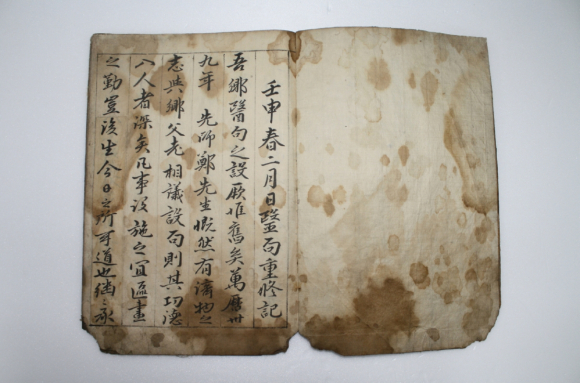 壬申春二月日毉局重修記
吾鄉醫局之設厥惟舊矣萬曆卅
九年 先師鄭先生慨然有濟物之
志與鄉父老相議設局則其功德
入人者深矣凡事設施之宜區畫
之勤豈後生今日之所可道也繼〻承